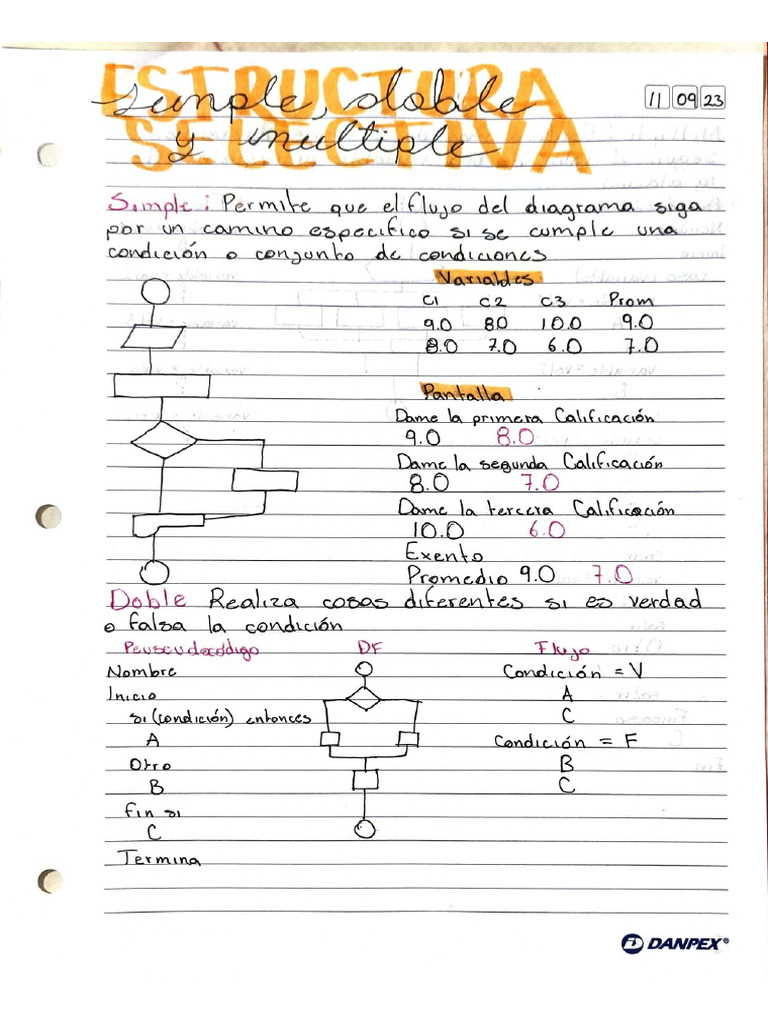 ESTRUCTURA
SELECTIVA
simple, doble
y multiple
11 09 23
Simple: Permite que el flujo del diagrama siga
por un camino especifico si se cumple una
condición o conjunto de condiciones
Variables
C1 C2 C3 Prom
9.0 80 10.0 9.0
8.0 7.0 6.0 7.0
Pantalla
Dame la primera Calificación
9.0 8.0
Dame la segunda Calificación
8.0 7.0
Dame la tercera Calificación
10.0 6.0
Exento
Promedio 9.0 7.0
Doble Realiza cosas diferentes si es verdad
o falsa la condición
Peuseudocódigo DF Flujo
Nombre Condición = V
Inicio A
si (condición) entonces C
A Condición = F
Otro B
B C
fin si
C
Termina
DANPEX®